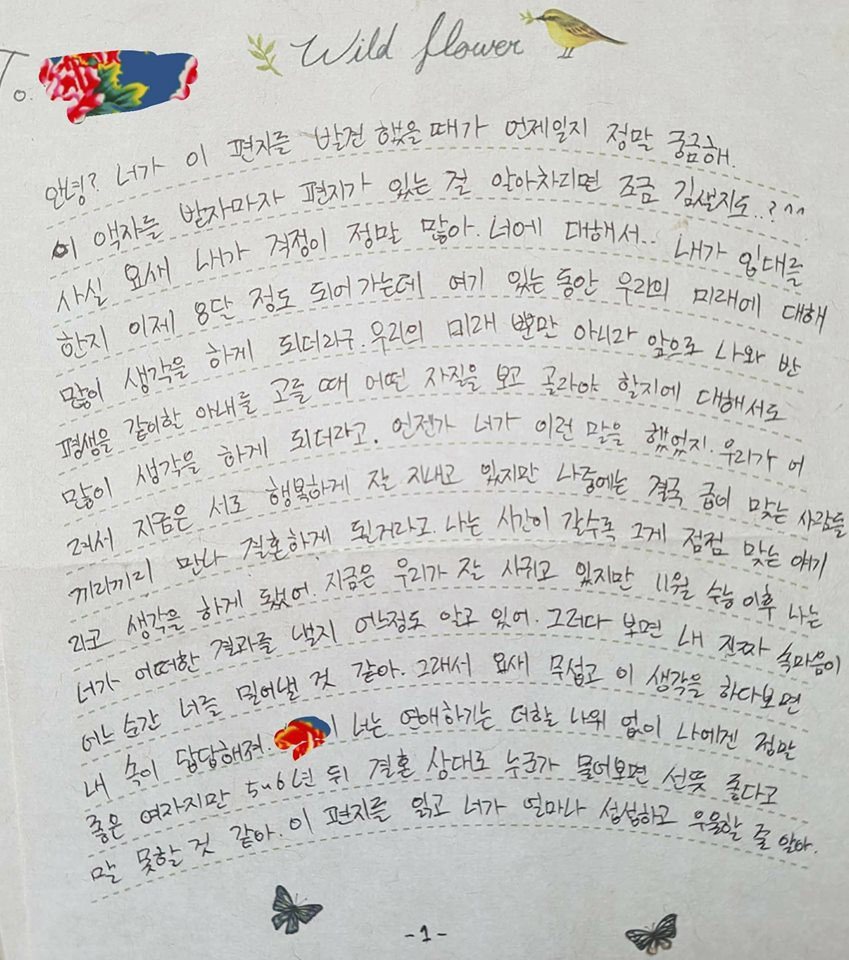 Wild flower
To.
안녕? 너가 이 편지를 발견 했을 때가 언제일지 정말 궁금해.
이 액자를 받자마자 편지가 있는 걸 알아차리면 조금 김샐지도..?^^
사실 요새 내가 걱정이 정말 많아. 너에 대해서.. 내가 입대를
한지 이제 8달 정도 되어 가는데 여기 있는 동안 우리의 미래에 대해
많이 생각을 하게 되더라구. 우리의 미래 뿐만 아니라 앞으로 나와 반
평생을 같이할 아내를 고를 때 어떤 자질을 보고 골라야 할지에 대해서도
많이 생각을 하게 되더라고. 언젠가 너가 이런 말을 했었지. 우리가 어
려서 지금은 서로 행복하게 잘 지내고 있지만 나중에는 결국 급이 맞는 사람들
끼리끼리 만나 결혼하게 될거라고. 나는 시간이 갈수록 그게 점점 맞는 얘기
라고 생각을 하게 됐어. 지금은 우리가 잘 사귀고 있지만 11월 수능 이후 나는
너가 어떠한 결과를 낼지 어느정도 알고 있어. 그러다 보면 내 진짜 속마음이
어느 순간 너를 밀어낼 것 같아. 그래서 요새 무섭고 이 생각을 하다보면
내 속이 답답해져. 너는 연애하기는 더할 나위 없이 나에겐 정말
좋은 여자지만 5~6년 뒤 결혼 상대로 누군가 물어보면 선뜻 좋다고
말 못할 것 같아. 이 편지를 읽고 너가 얼마나 섭섭하고 우울할 줄 알아.
-1-